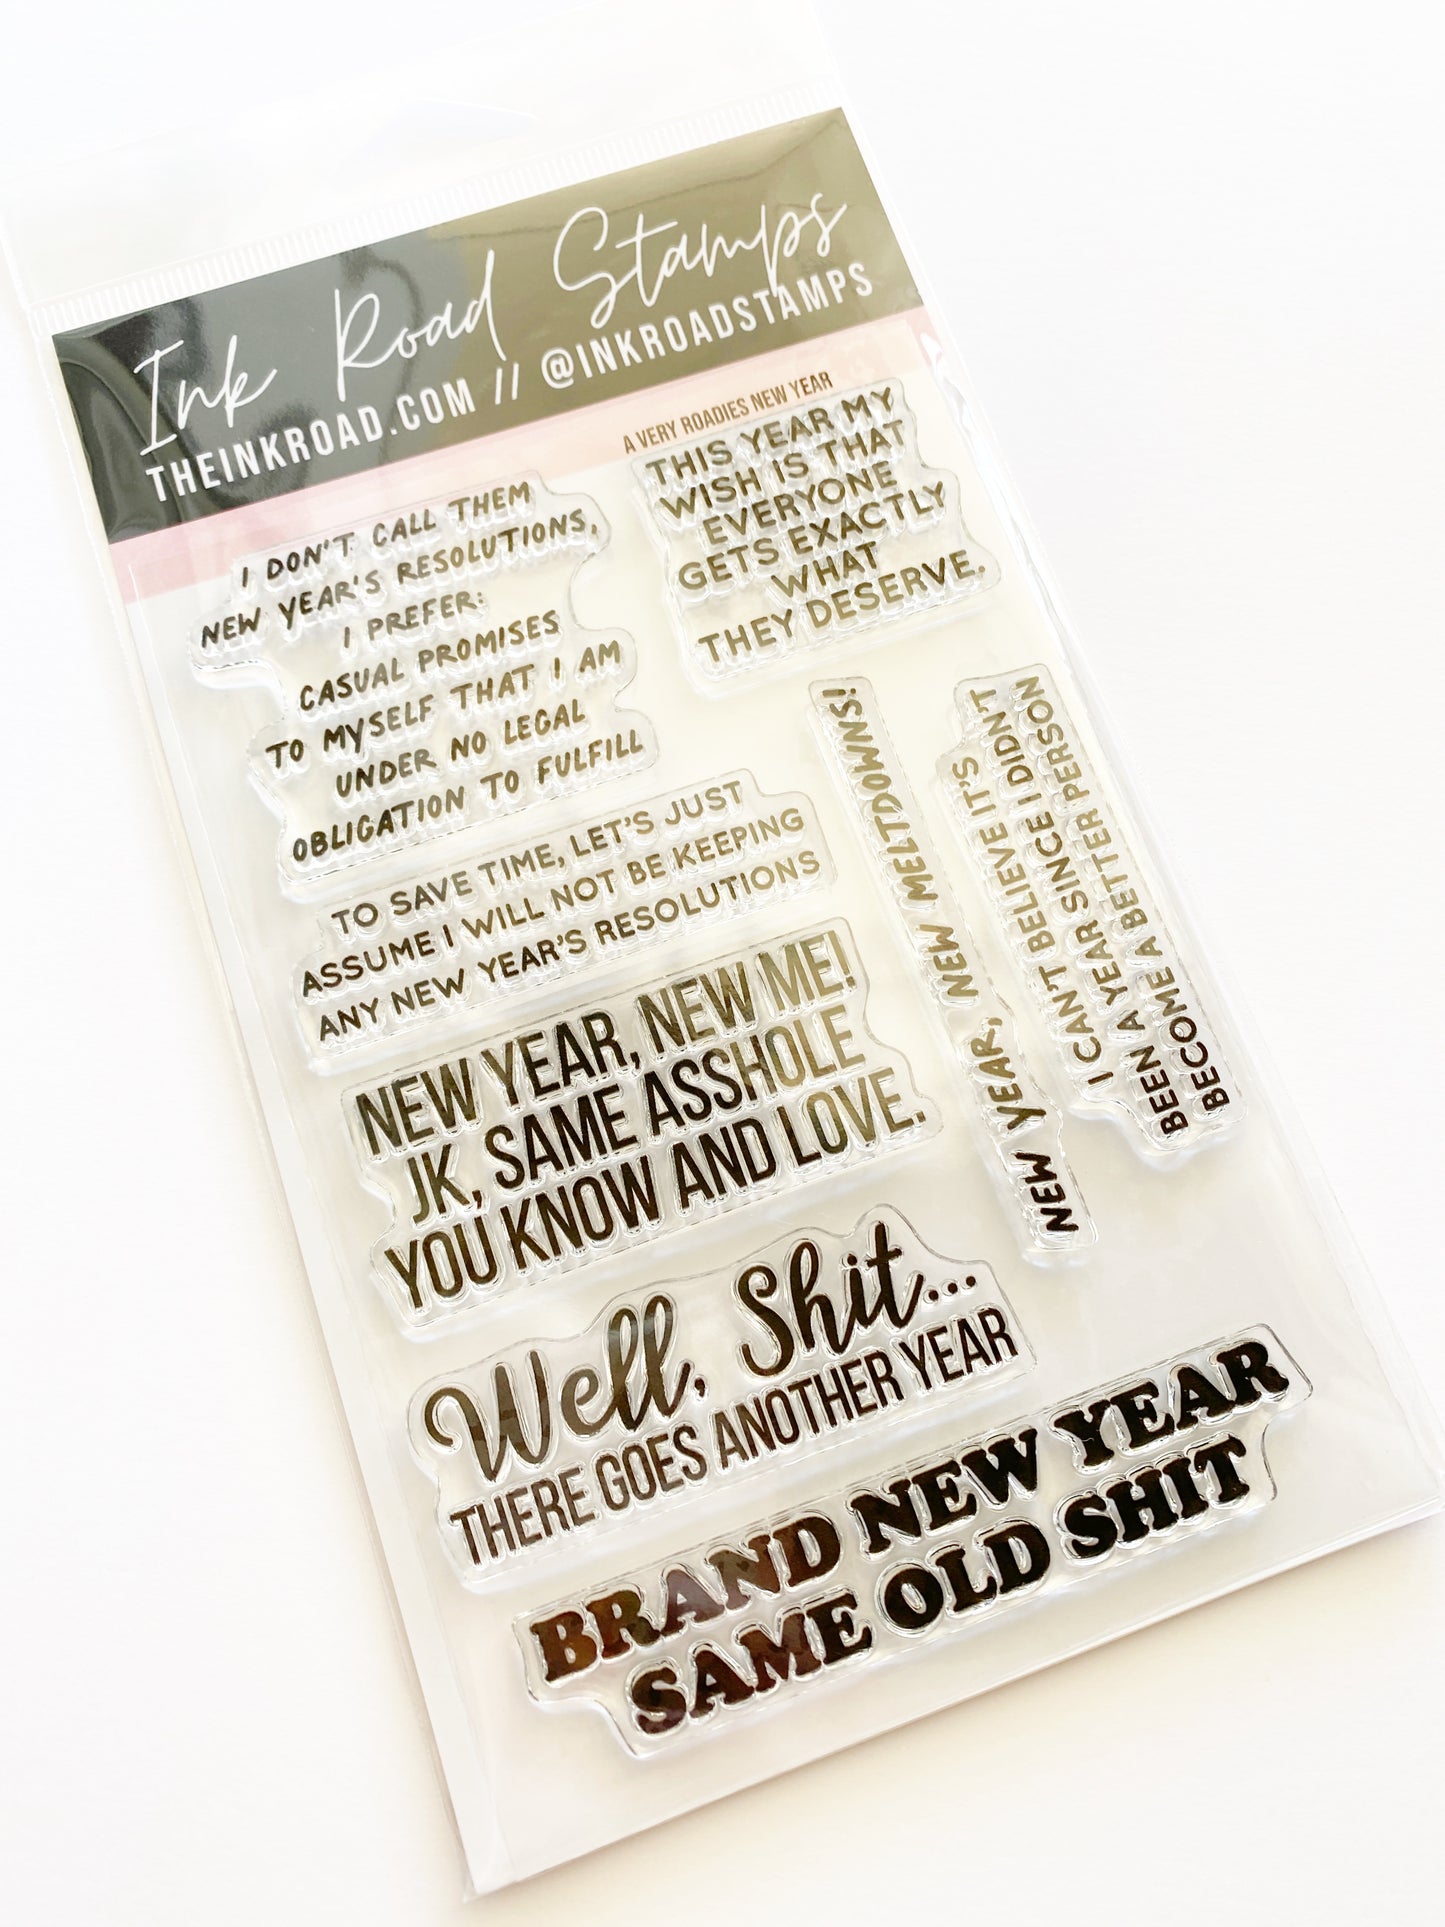 Ink Road Stamps
THEINKROAD.COM // @INKROADSTAMPS
A VERY ROADIES NEW YEAR
I DON'T CALL THEM
NEW YEAR'S RESOLUTIONS,
I PREFER:
CASUAL PROMISES
TO MYSELF THAT I AM
UNDER NO LEGAL
OBLIGATION TO FULFILL
THIS YEAR MY
WISH IS THAT
EVERYONE
GETS EXACTLY
WHAT
THEY DESERVE.
TO SAVE TIME, LET'S JUST
ASSUME I WILL NOT BE KEEPING
ANY NEW YEAR'S RESOLUTIONS
NEW YEAR, NEW MELTDOWNS!
I CAN'T BELIEVE IT'S
BEEN A YEAR SINCE I DIDN'T
BECOME A BETTER PERSON
NEW YEAR, NEW ME!
JK, SAME ASSHOLE
YOU KNOW AND LOVE.
Well, Shit...
THERE GOES ANOTHER YEAR
BRAND NEW YEAR
SAME OLD SHIT